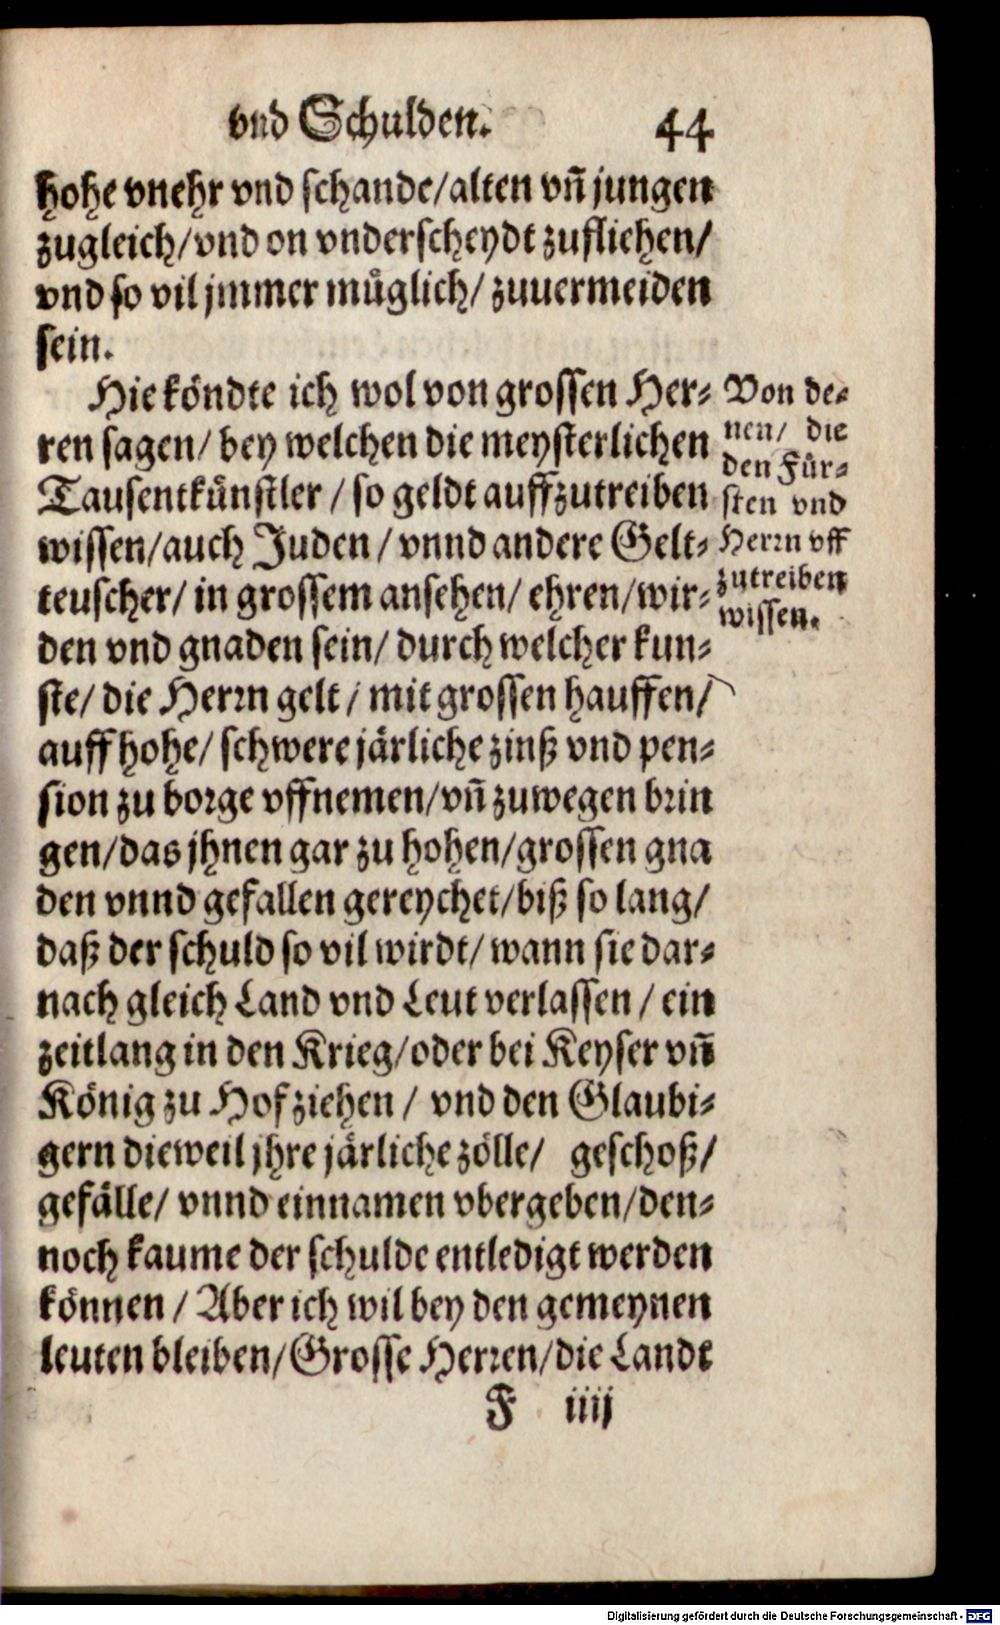 vnd Schulden. 44
hohe vnehr vnd schande/alten vñ jungen
zugleich/vnd on vnderscheydt zufliehen/
vnd so vil jmmer müglich/ zuuermeiden
sein.
Hie köndte ich wol von grossen Her-
ren sagen/ bey welchen die meysterlichen
Tausentkünstler / so geldt auffzutreiben
wissen/auch Juden / vnnd andere Gelt-
teuscher/ in grossem ansehen/ ehren/wir-
den vnd gnaden sein/ durch welcher kun-
ste/ die Herrn gelt / mit grossen hauffen/
auff hohe/ schwere järliche zinß vnd pen-
sion zu borge vffnemen/vñ zuwegen brin
gen/das jhnen gar zu hohen/grossen gna
den vnnd gefallen gereychet/biß so lang/
daß der schuld so vil wirdt/ wann sie dar-
nach gleich Land vnd Leut verlassen / ein
zeitlang in den Krieg/oder bei Keyser vñ
König zu Hof ziehen / vnd den Glaubi-
gern dieweil jhre järliche zölle/ geschoß/
gefälle/ vnnd einnamen vbergeben/den-
noch kaume der schulde entledigt werden
können / Aber ich wil bey den gemeynen
leuten bleiben/Grosse Herren/die Landt
F iiij
Von de-
nen/ die
den Für-
sten vnd
Herrn vff
zutreiben
wissen.
Digitalisierung gefördert durch die Deutsche Forschungsgemeinschaft - DFG